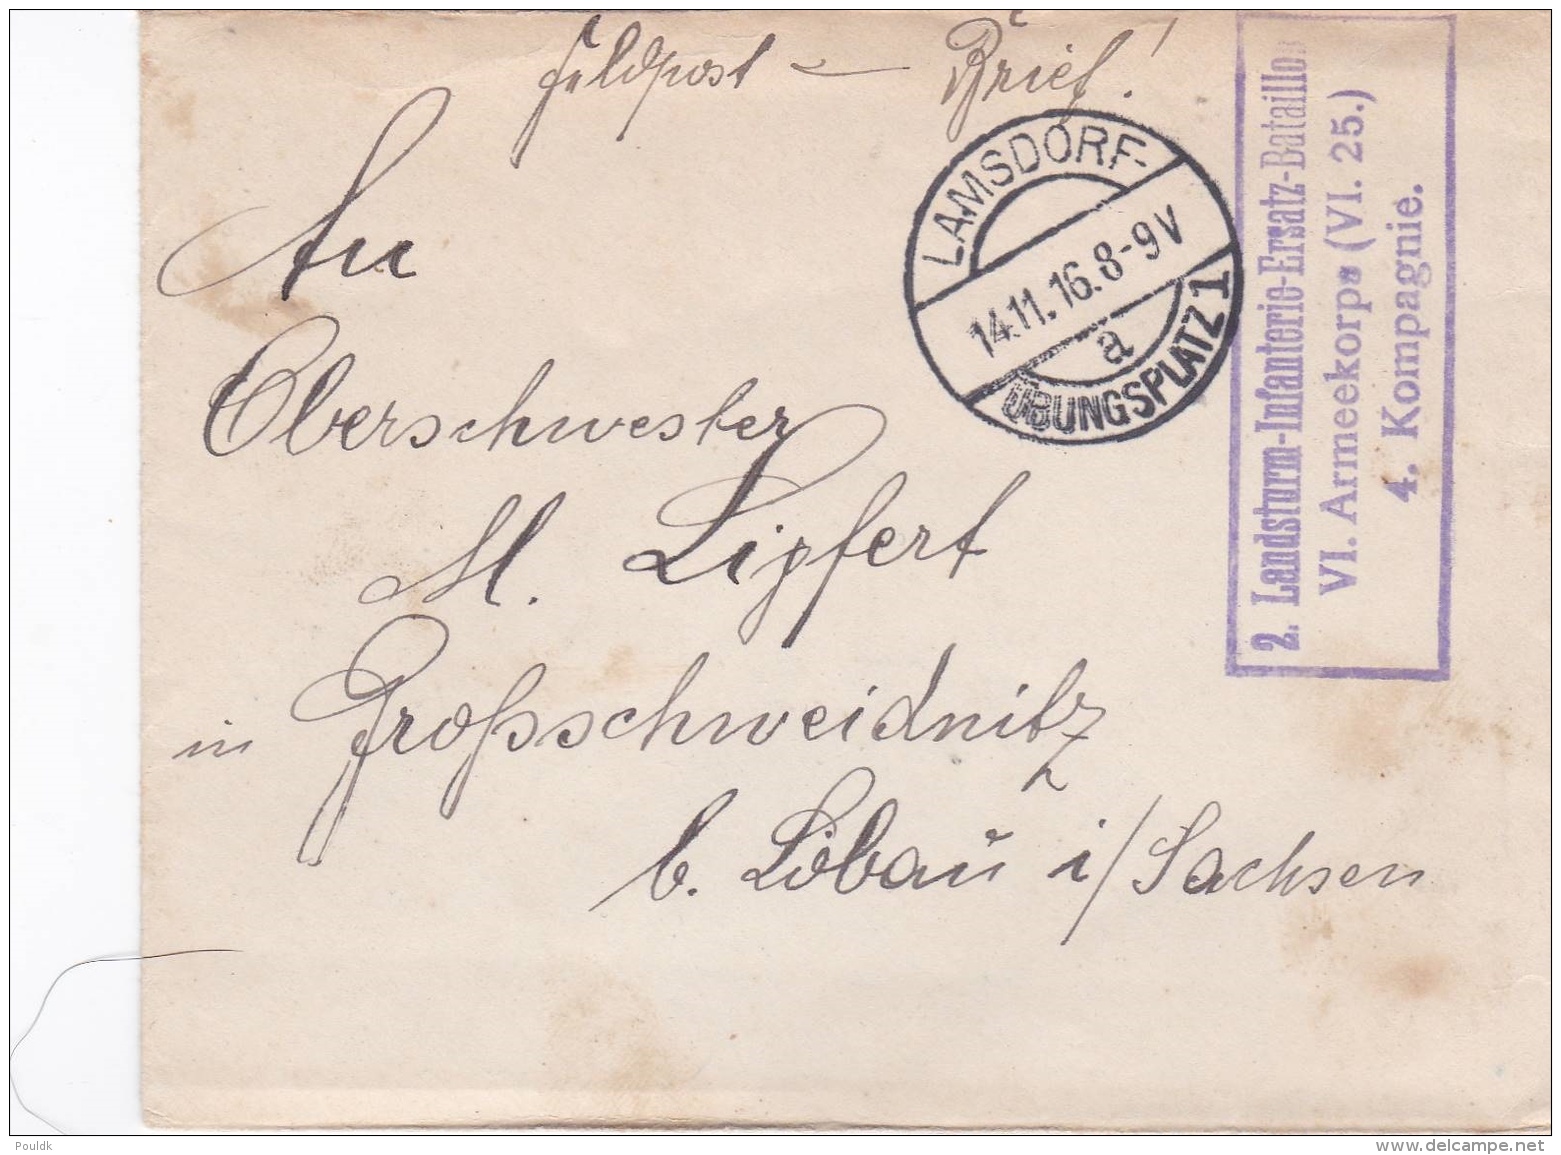 Feldpost — Brief!
An
Oberschwester
M. Lipfert
in Großschweidnitz
b. Löbau i/Sachsen
LAMSDORF-
14.11.16.8-9V
a
ÜBUNGSPLATZ 1
2. Landsturm-Infanterie-Ersatz-Bataillon
VI. Armeekorps (VI. 25.)
4. Kompagnie.
Pouldk
delcampe.net